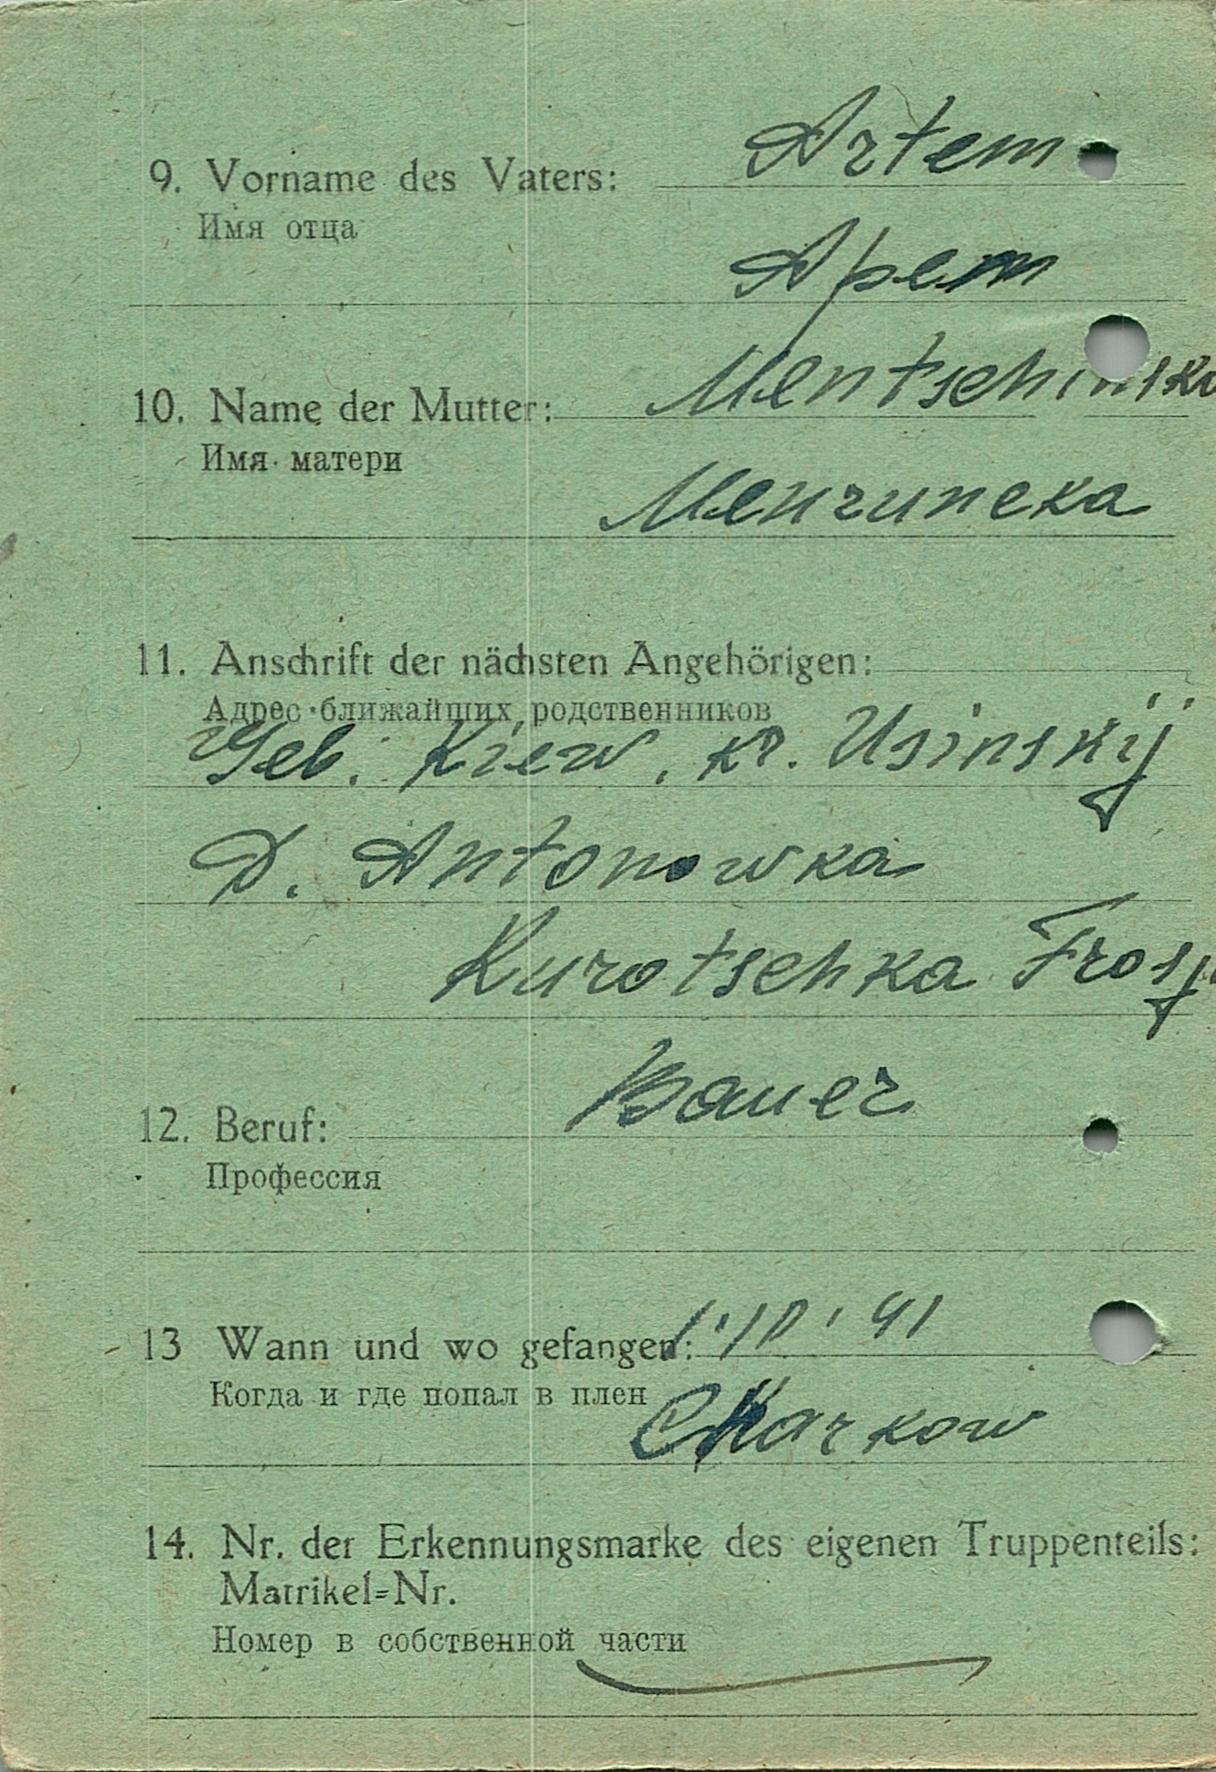 9. Vorname des Vaters: Artem
Имя отца
Арем
10. Name der Mutter: Mentschinska
Имя матери
Менчинска
11. Anschrift der nächsten Angehörigen:
Адрес ближайших родственников
Geb. Kiew, kr. Usinskij
D. Antonowka
Kurotschka Frosj
12. Beruf: Bauer
Профессия
13 Wann und wo gefangen: 1.10.41
Когда и где попал в плен
Charkow
14. Nr. der Erkennungsmarke des eigenen Truppenteils:
Matrikel=Nr.
Номер в собственной части